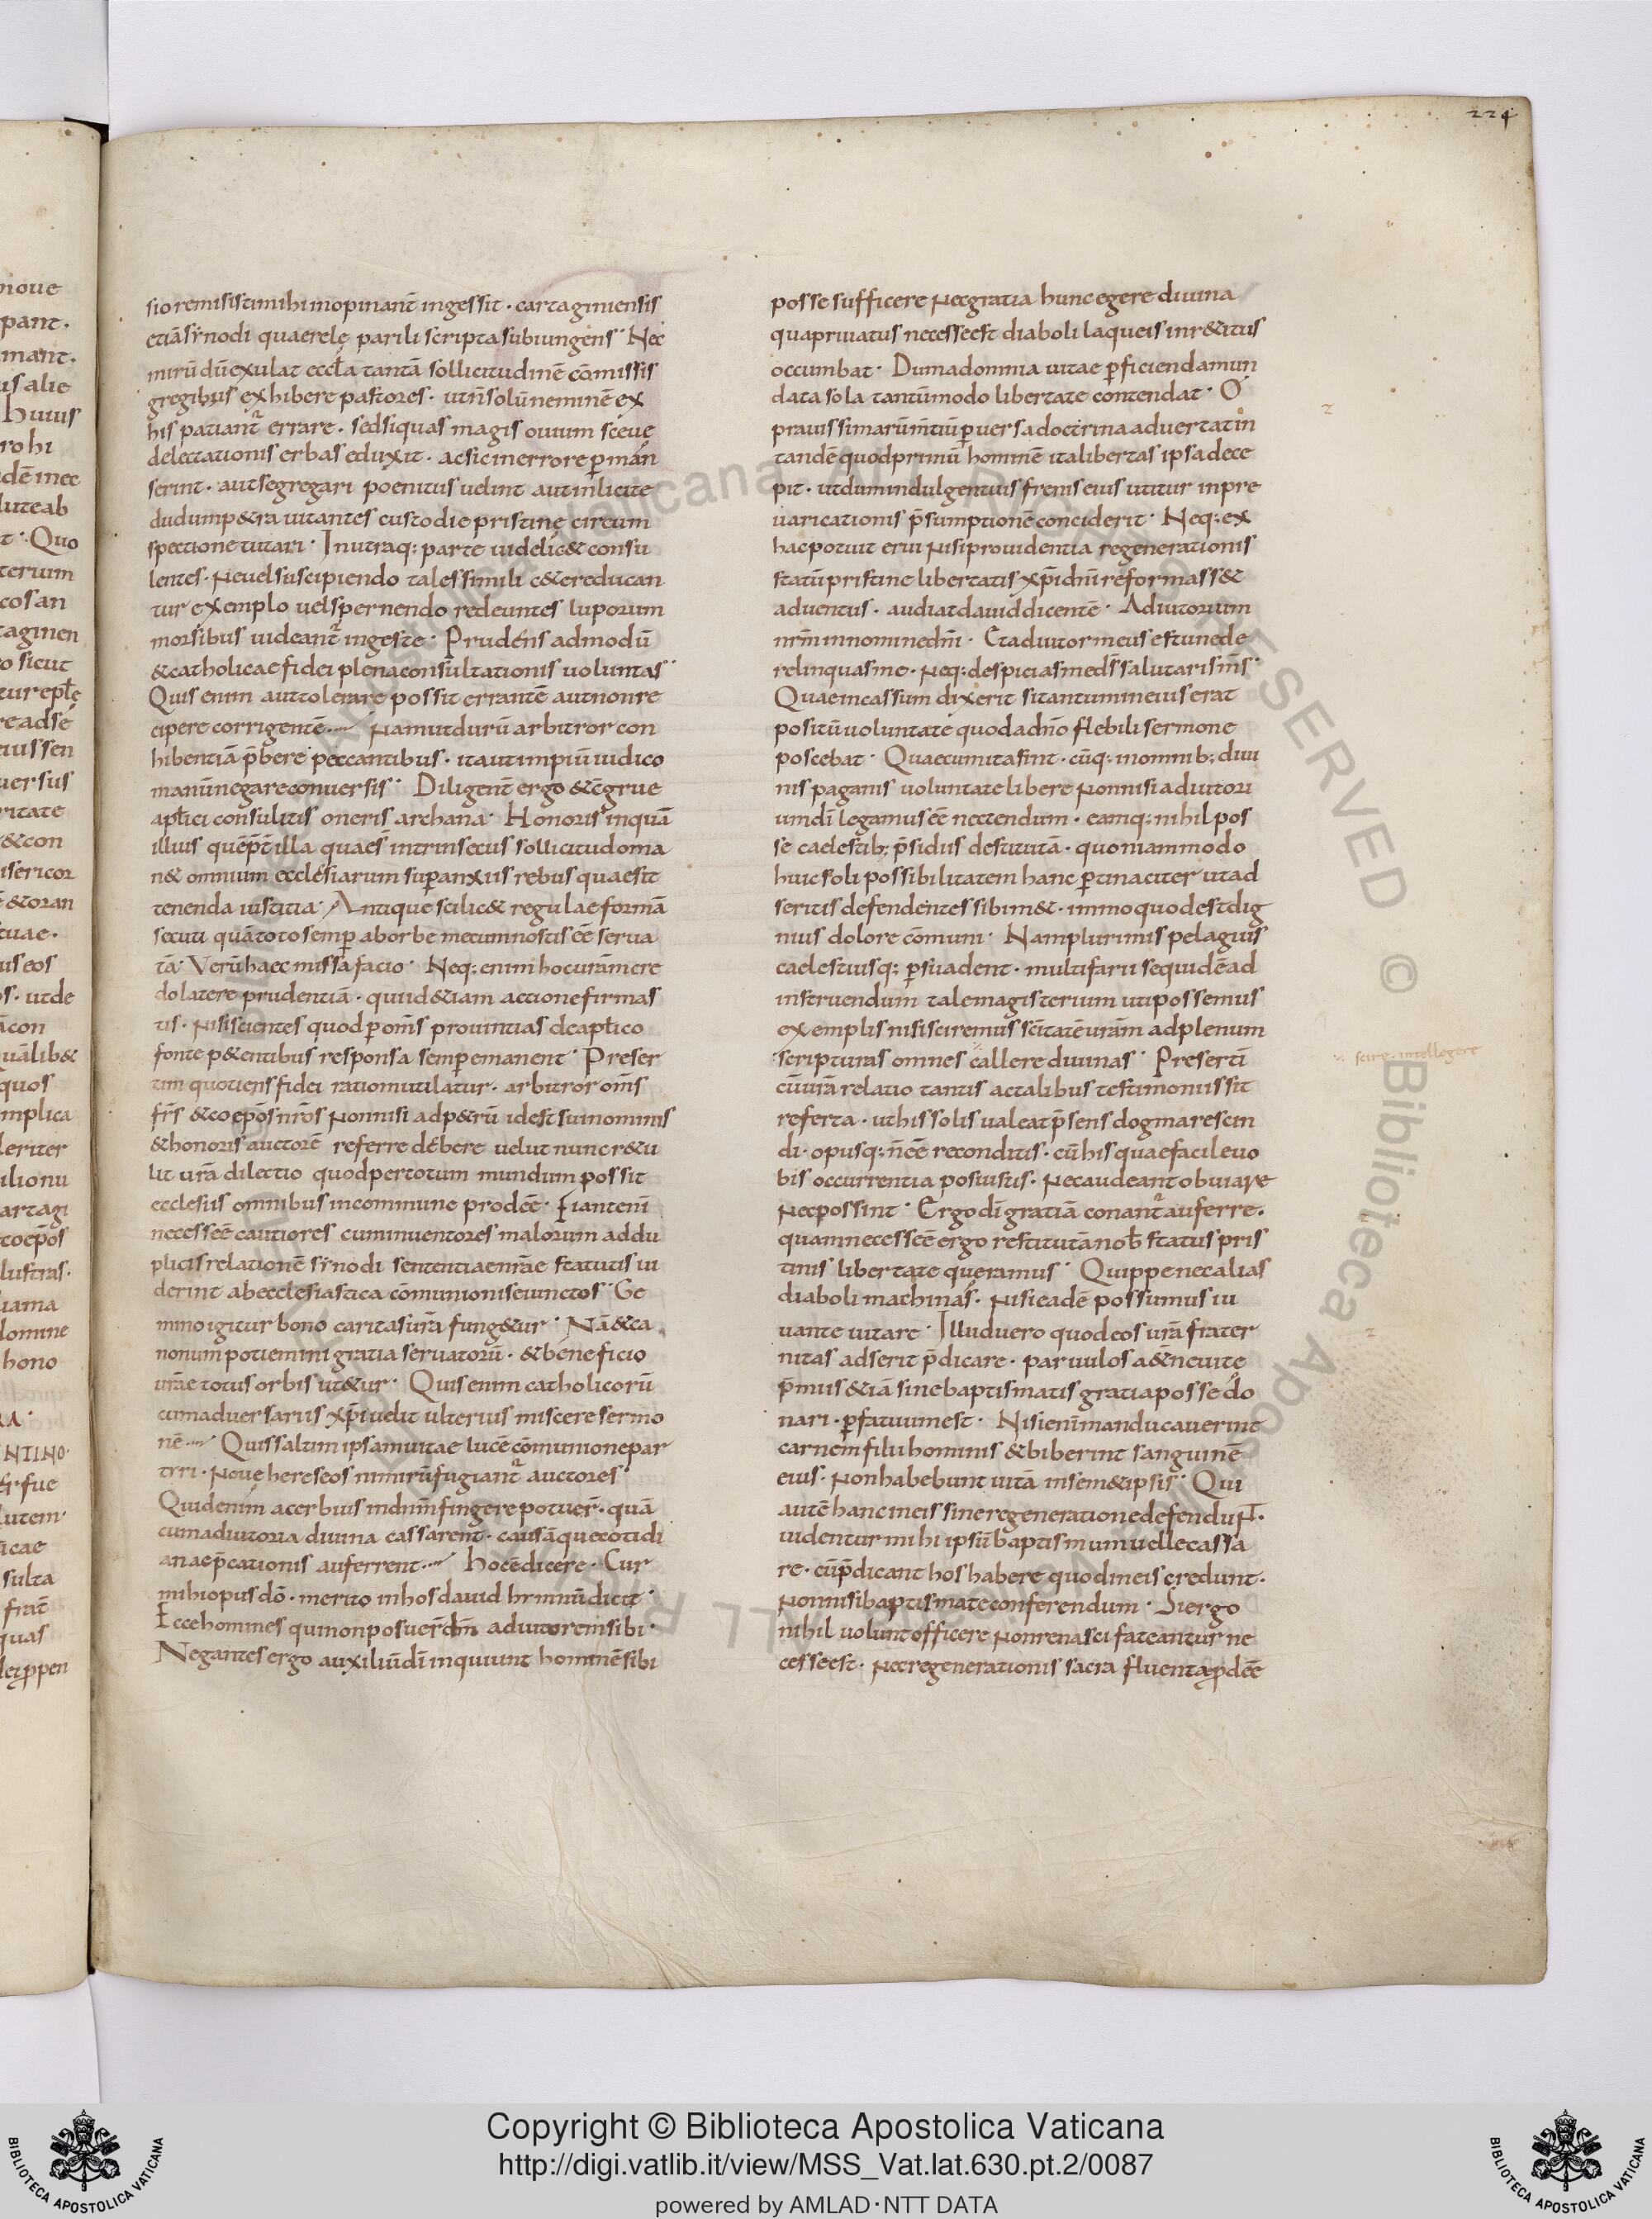 224
sio remisistimihi inopinant̄ ingessit · cartaginiensis
etiā sẏnodi quaerelę parili scripta subiungens · Nec
mirū dū exulat eccl̄a tantā sollicitudinē cōmissis
gregibus exhibere pastores · utn̄ solū neminē ex
his patiant᷑ errare · sed siquas magis ouium sceuę
delectationis erbas eduxit · ac sic inerrore ꝑ man
serint · aut segregari poenitus uelint aut inlicite
dudum p&ra uitantes custodie pristinę circum
spectione tutari · In utraq; parte uidelic& consu
lentes · Ne uel suscipiendo tales simili c&e reducan
tur exemplo uel spernendo redeuntes luporum
morsibus uideant᷑ ingeste · Prudens admodū
& catholicae fidei plena consultationis uoluntas ·
Quis enim aut tolerare possit errantē aut non re
cipere corrigentē · Nam ut durū arbitror con
hibentiā p̄bere peccantibus · ita ut impiū iudico
manū negare conuersis · Diligent̄ ergo & c̄grue
apl̄ici consulitis oneris archana · Honoris inquā
illius quē p̄t̄ illa quae s̄ intrinsecus sollicitudo ma
n& omnium ecclesiarum suꝑ anxiis rebus quae sit
tenenda iustitia · Antique scilic& regulae formā
secuti quā toto semꝑ ab orbe mecum nostis eē serua
tā · Verū haec missa facio · Neq; enim hoc urām cre
do latere prudentiā · quiid &iam actione firmas
tis · Nisi scientes quod ꝑ om̄s prouintias de apl̄ico
fonte p&entibus responsa semꝑ emanent · Preser
tim quotiens fidei ratio mutilatur · arbitror om̄s
fr̄s & coep̄os nr̄os Nonnisi ad p&rū idest sui nominis
& honoris auctorē referre debere uelut nunc r&u
lit ur̄a dilectio quod per totum mundum possit
ecclesiis omnibus in commune prodeē · Fiant enī
necesse ē cautiores cum inuentores malorum ad du
plicis relationē sẏnodi sententiae nr̄ae statutis ui
derint ab ecclesiastica cōmunione seiunctos · Ge
mino igitur bono caritas ur̄a fung&ur · Nā & ca
nonum potiemini gratia seruatorū · & beneficio
ur̄ae totus orbis ut&ur · Quis enim catholicorū
cum aduersariis xp̄i uelit ulterius miscere sermo
nē · Quis saltim ipsam uitae lucē cōmunione par
tiri · Noue hereseos nimirū fugiant᷑ auctores ·
Quid enim acerbius in dnm̄ fingere potuer̄ · quā
cum adiutoria diuina cassarent · causāque cotidi
anae p̄cationis auferrent · Hoc ē dicere · Cur
mihi opus dō · merito in hos dauid hẏmnū dicit ·
Ecce homines qui non posuer̄ dn̄m adiutorem sibi ·
Negantes ergo auxiliū dī inquiunt hominē sibi
posse sufficere Nec gratia hunc egere diuina
qua priuatus necesse est diaboli laqueis inr&itus
occumbat · Dum ad omnia uitae ꝑficienda mun
data sola tantūmodo libertate contendat · O
prauissimarū m̄tiū ꝑuersa doctrina aduertat in
tandē quod primū hominē ita libertas ipsa dece
pit · ut dum indulgentius frenis eius utitur in pre
uaricationis p̄sumptionē conciderit · Neq; ex
hac potuit erui Nisi prouidentia regenerationis
statū pristine libertatis xp̄i dn̄i reformass&
aduentus · audiat dauid dicentē · Adiutorium
nr̄m in nomine dn̄i · Et adiutor meus esto ne de
relinquas me · Neq; despicias me ds̄ salutaris m̄s ·
Quae incassum dixerit si tantum in eius erat
positū uoluntate quod ad dn̄o flebili sermone
poscebat · Quae cum ita sint · cūq; in omnib; diui
nis paganis uoluntate libere Nonnisi adiutori
um dī legamus eē nectendum · eamq; nihil pos
se caelestib; p̄sidiis destitutā · quonam modo
huic soli possibilitatem hanc ꝑtinaciter ut ad
seritis defendentes sibim& · immo quod est dig
nius dolore cōmuni · Nam plurimis pelagius
caelestiusq; ꝑsuadent · multifarii sequidē ad
instruendum tale magisterium uti possemus
exemplis nisi sciremus sc̄itatē urām ad plenum
scripturas omnes callere diuinas · Presertī
cū ur̄a relatio tantis ac talibus testimoniis sit
referta · ut his solis ualeat p̄sens dogma rescin
di · opusq; n̄ eē reconditis · cū his quae facile uo
bis occurrentia posuistis · Nec audeant obuiare
Nec possint · Ergo dī gratiā conant᷑ auferre ·
quam necesse ē ergo restitutā nob̄ status pris
tinis libertate queramus · Quippe nec alias
diaboli machinas · Nisi eadē possumus iu
uante uitare · Illud uero quod eos ur̄a frater
nitas adserit p̄dicare · paruulos a&nę uitę
p̄miis &iā sine baptismatis gratia posse do
nari · ꝑfatuum est · Nisi enī manducauerint
carnem filii hominis & biberint sanguinē
eius · Non habebunt uitā in sem&ipsis · Qui
autē hanc in eis sine regeneratione defendunt ·
uidentur mihi ipsū baptismum uelle cassa
re · cū p̄dicant hos habere quod in eis credunt ·
Nonnisi baptismate conferendum · Si ergo
nihil uolunt officere Non renasci fateantur ne
cesse est · Nec regenerationis sacra fluenta ꝓdeē
scire · intellegere
Copyright © Biblioteca Apostolica Vaticana
http://digi.vatlib.it/view/MSS_Vat.lat.630.pt.2/0087
powered by AMLAD · NTT DATA
BIBLIOTECA APOSTOLICA VATICANA
BIBLIOTECA APOSTOLICA VATICANA